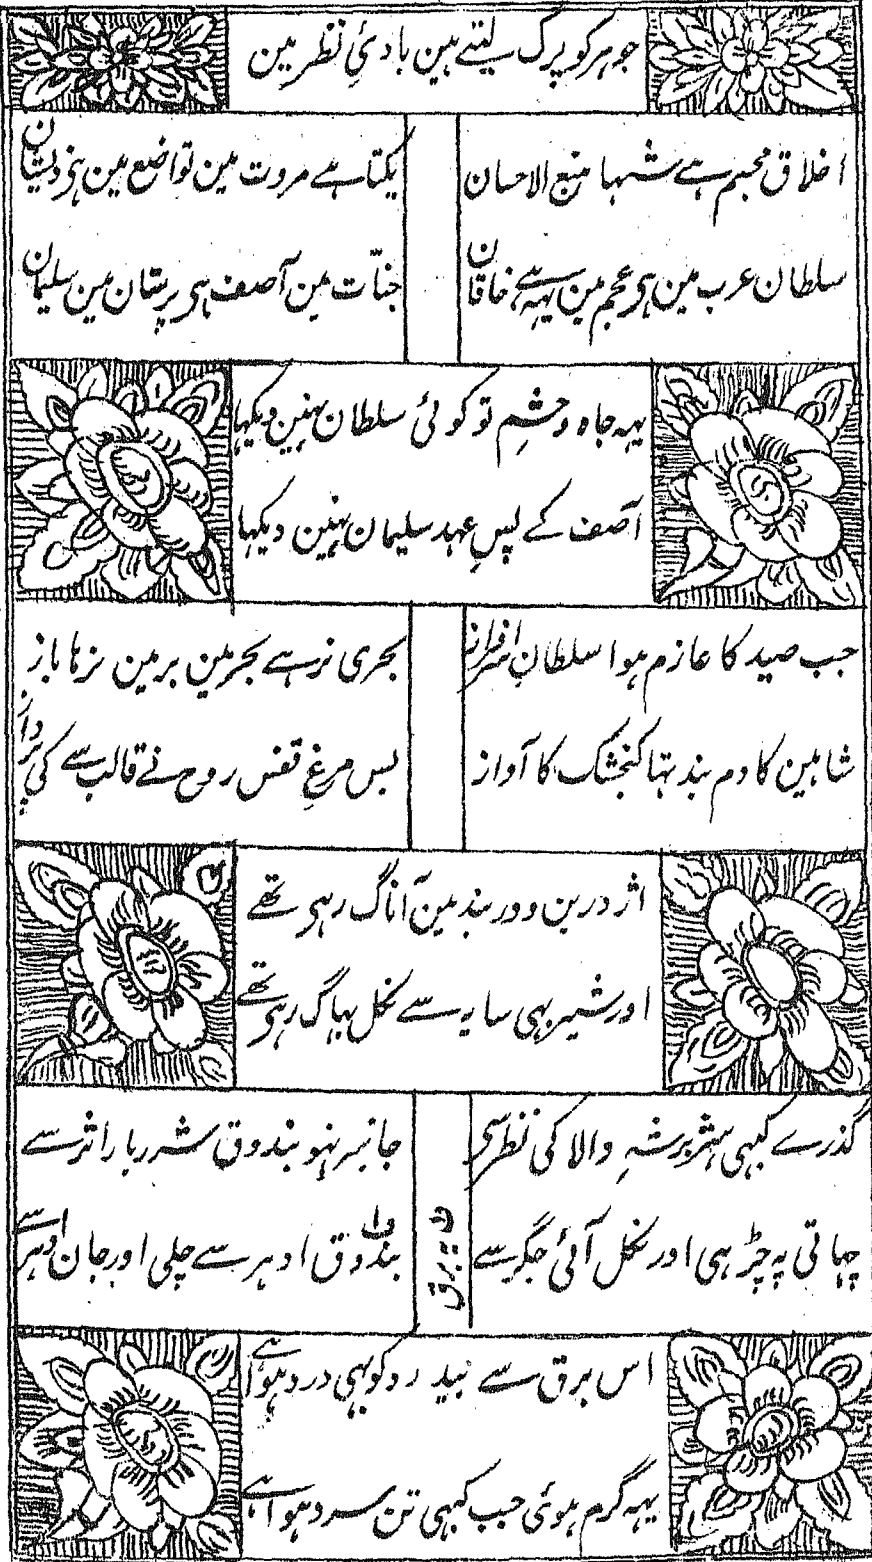 جوہر کو پرگ لیتے ہین بادئ نظر مین
اخلاق مجسم ہے شہا منبع الاحسان
یکتا ہے مروت مین تواضع مین ہی ذیشان
سلطان عرب مین ہی عجم مین یہہ ہے خاقان
جنّات مین آصف ہی پرستان مین سلیمان
یہہ جاہ و حشمِ تو کوئی سلطان نہین دیکہا
آصف کے پسِ عہد سلیمان نہین دیکہا
جب صید کا عازم ہوا سلطانِ سرافراز
بحری نر ہے بحر مین بر مین نرہا باز
شاہین کا دم بند تہا کنجشک کا آواز
بس مرغِ قفس روح نے قالب سے کی پرواز
اژدر بن و در بند مین آناگ رہی تھے
اور شیر بہی سایہ سے نکل بہاگ رہی تھے
گذرے کبہی ہشر بر شہِ والا کی نظر سے
جانبر نہو بندوق شرربار اثر سے
چہاتی پہ چڑہی اور نکل آئی جگر سے
بندوق ادہر سے چلی اور جان اودہر سے
اس برق سے بیدرد کو بہی درد ہوا ہے
یہہ گرم ہوئی جب کبہی تن سرد ہوا ہے